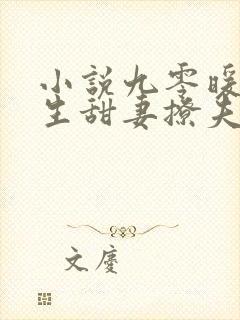 小說九零暖
生甜妻撩夫
文慶